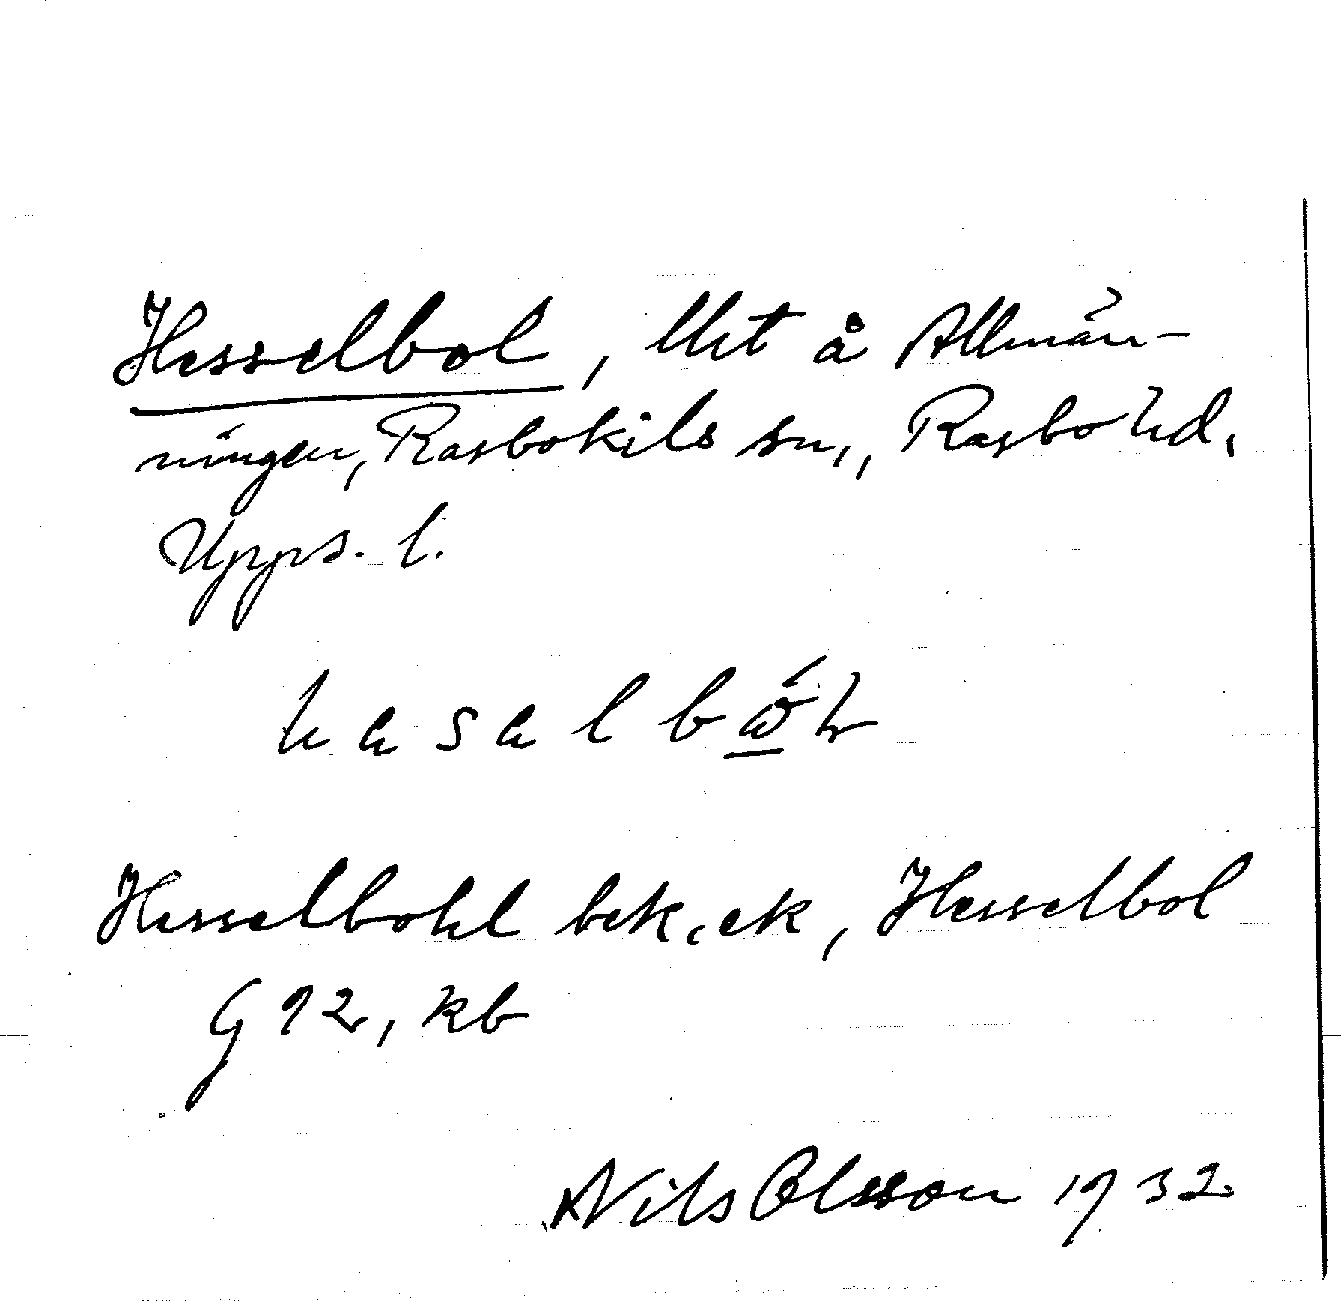 Hesselbol, lht å Allmän-
ningen, Rasbokils sn., Rasbo hd.
Upps. l.
Hesselbohl bek, ek, Hesselbol
G 92, kb
Nils Olsson 1932